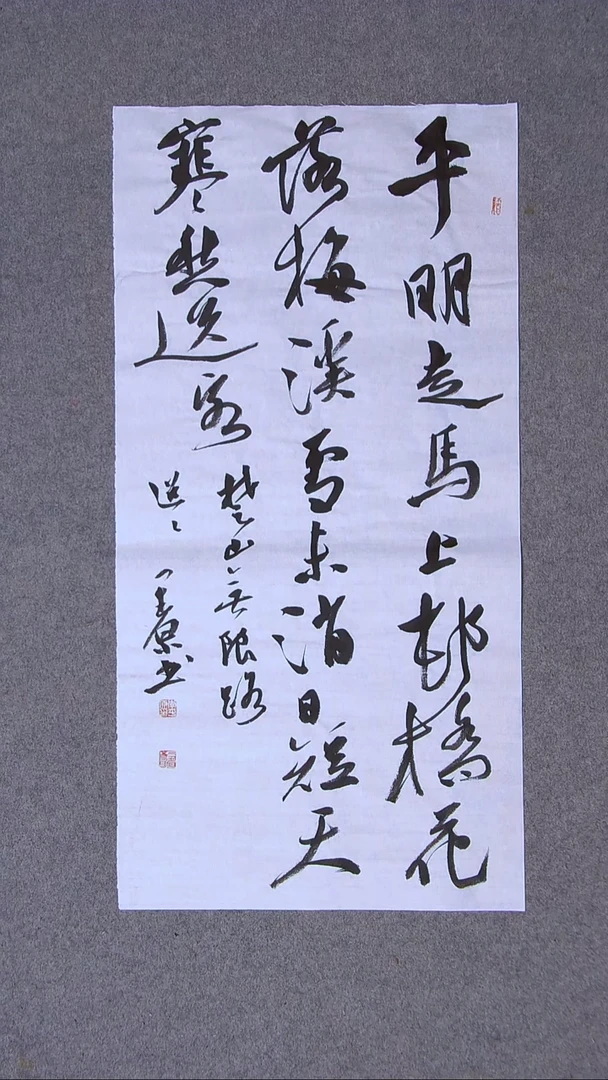 平明走馬上邨橋花
落梅溪雪未消日短天
寒愁送客
楚山無限路
遥〻
书